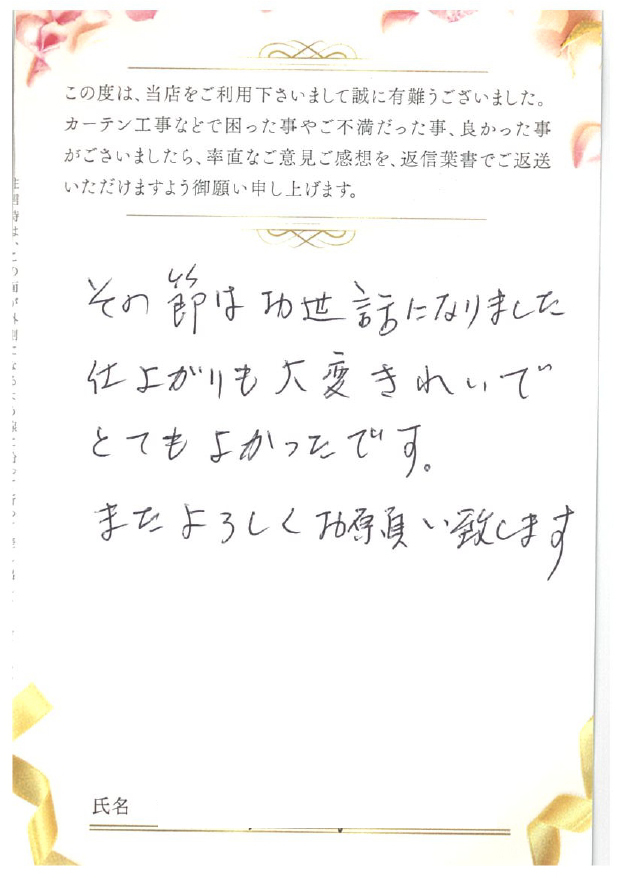 この度は、当店をご利用下さいまして誠に有難うございました。
カーテン工事などで困った事やご不満だった事、良かった事
がございましたら、率直なご意見ご感想を、返信葉書でご返送
いただけますよう御願い申し上げます。
その節はお世話になりました
仕上がりも大変きれいで
とてもよかったです。
またよろしくお願い致します
氏名